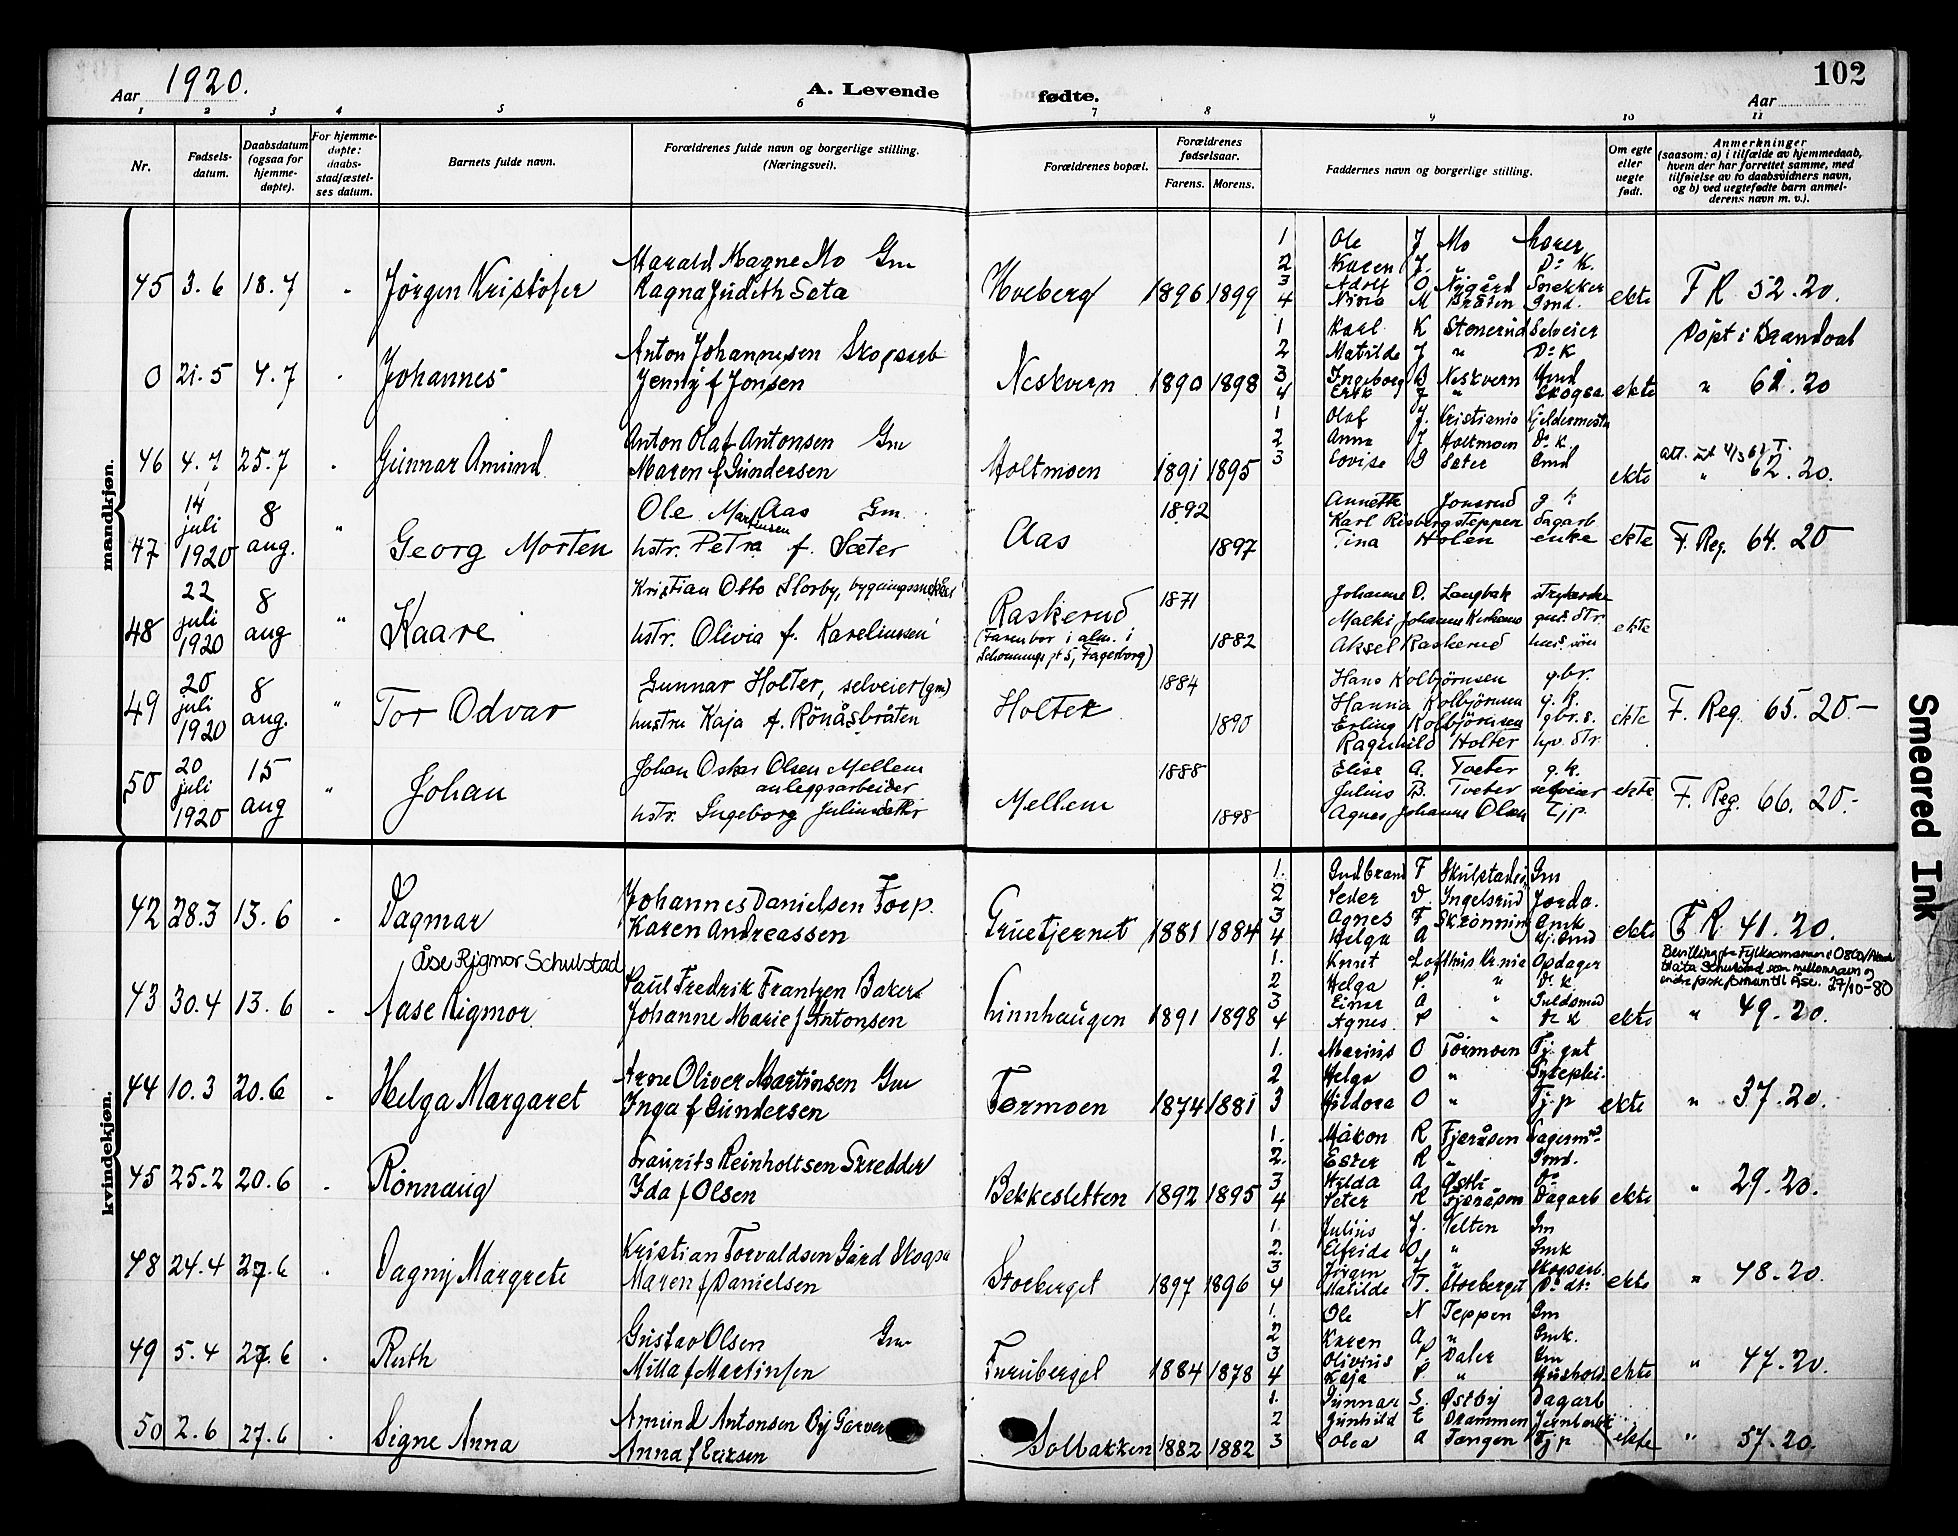 102
Aar 1920.
A. Levende fødte.
Aar
1 2 3 4 5 6 7 8 9 10 11
Nr.
Fødsels-
datum.
Daabsdatum
(ogsaa for
hjemme-
døpte).
For hjemme-
døpte:
daabs-
stadfæstel-
ses datum.
Barnets fulde navn.
Forældrenes fulde navn og borgerlige stilling.
(Næringsvei).
Forældrenes bopæl.
Forældrenes
fødselsaar.
Farens. Morens.
Faddernes navn og borgerlige stilling.
Om egte
eller
uegte
født.
Anmerkninger
(saasom: a) i tilfælde av hjemmedaab,
hvem der har forrettet samme, med
tilføielse av to daabsvidners navn,
og b) ved uegtefødte barn anmel-
derens navn m. v.).
mandkjøn.
45 3.6 18.7 Jörgen Kristofer
Harald Magne Mo Gm
Ragna Judith Seta
Hveberg 1896 1899
1 Ole J Mo
2 Karen J. " Do K.
3 Adolf O Nygård Snekker
4 M Bråten Gmd.
ekte F R 52.20.
0 21.5 4.7 Johannes
Anton Johannesen Skogsarb
Jenny f Jonsen
Neskvern 1890 1898
1 Karl K Stenerud Selveier
2 Matilde J " Do K
3 Ingeborg B Neskvern Gmd
4 Erik J " Skogsa.
ekte Döpt i Brandval
" 62.20
46 4.7 25.7 Gunnar Amund
Anton Olaf Antonsen Gm
Maren f Gundersen
Holtmoen 1891 1895
1 Olaf J. Kristiania
2 Anna J Holtmoen Do K
3 Lovise G Sæter Gmd
ekte " 62.20.
47 14 juli 1920 8 aug. " Georg Morten
Ole Martinsen Aas Gm.
hstr. Petra f. Sæter
Aas 1892 1897
Annette Jonsrud g. k
Karl Risberg steppen dagarb
Tina Holen enke
ekte F. Reg. 64.20
48 22 juli 1920 8 aug " Kaare
Kristian Otto Storby,
hstr. Olivia f. Kareliussen
Raskerud
(Faren bor i alm. i
Schønnings gt 5, Fagerborg)
1871 1882
Johanne O. Langbak
Johanne
Aksel Raskerud
ekte
49 20 juli 1920 8 aug. " Tor Odvar
Gunnar Holter, selveier (gm)
hustru Kaja f. Rönåsbråten
Holter 1884 1890
Hans Kolbjörnsen gbr.
Hanna Kolbjörnsen g. k.
Erling Kolbjörnsen gbr. s.
Ragnhild Holter hpv. dtr.
ekte F. Reg. 65.20.-
50 20 juli 1920 15 aug " Johan
Johan Oskar Olsen Mellem
anleggsarbeider
hstr. Ingeborg
Mellem 1888 1898
Elise A. Tveter g. k.
Julius B. Tveter selveier
Agnes Johanne Olsen Tjp.
ekte F. Reg. 66.20.-
kvindekjøn.
42 28.3 13.6 Dagmar
Johannes Danielsen Torp.
Karen Andreassen
Gruetjernet 1881 1884
1. Gudbrand F Skulstad Gm
2 Peder O. Ingelsrud Jorda.
3 Agnes F Skrönning Gmk
4 Helga A
ekte F R 41.20.
Åse Rigmor Schulstad
43 30.4 13.6 Aase Rigmor
Paul Fredrik Frantzen Baker
Johanne Marie f Antonsen
Linnhaugen 1891 1898
1. Knut Lofthus
2 Helga P. " Do K
3 Einar A " Guldsmed
4 Agnes. P " Do K
ekte
Bevilling fra Fylkesmannen i Oslo/Akersh
til å ta Schulstad som mellomnavn og
endre første fornavn til Åse. 27/10-80
" 49.20.
44 10.3 20.6 Helga Margaret
Arne Oliver Martinsen Gm
Inga f Gundersen
Tormoen 1874 1881
1. Marius O Tormoen Tj. gut
2 Helga O "
3 Hildora O " Tj. p
ekte " 37.20.
45 25.2 20.6 Rönnaug
Laurits Reinholtsen Skredder
Ida f Olsen
Bekkesletten 1892 1895
1. Håkon R Fjeråsen
2. Ester R " Gmd.
3 Hilda A Østli Do
4 Peter R Fjeråsen Dagarb
ekte " 29.20.
48 24.4 27.6 Dagny Margrete
Kristian Torvaldsen Gård Skogsa
Maren f Danielsen
Storberget 1897 1896
1. Julius J. Velten Gm
2. Elfrida O. " Gmk
3 Jörgen J " Skogsarb.
4 Matilde T. Storberget Do dtr
ekte " 48.20.
49 5.4 27.6 Ruth
Gustav Olsen Gm
Milla f Martinsen
Furuberget 1884 1878
1. Ole N Teppen Gm
2 Karen A " Gmk.
3 Olivius P. Daler Gm
4 Kaja P "
ekte " 47.20.
50 2.6 27.6 Signe Anna
Amund Antonsen By Garver
Anna f Eriksen
Solbakken 1882 1882
1. Gunnar S. Østby Dagarb
2 Gunhild E Drammen
3 Olea A Tangen Tj p
ekte " 57.20.
Smeared Ink